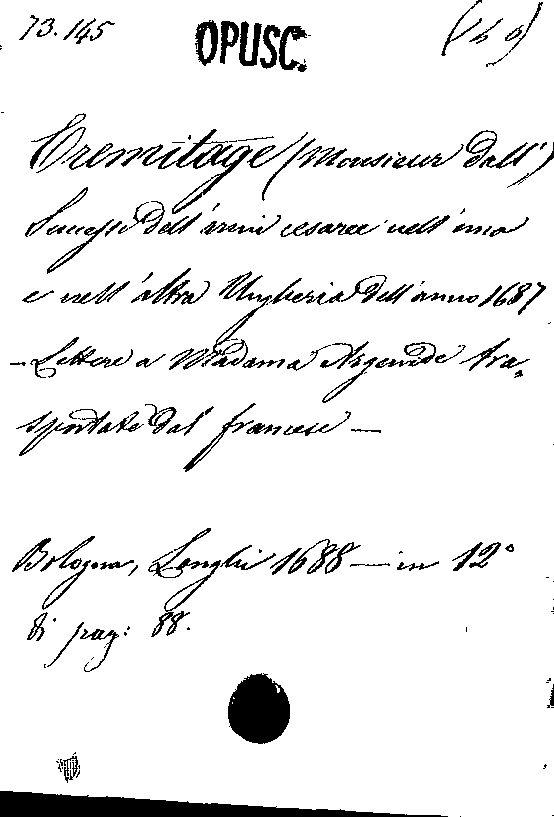 73.145 OPUSC.
Eremitage (Monsieur dall')
Successi dell'armi cesaree nell'una
e nell'altra Ungheria dell'anno 1687
— Lettere a Madama Argenide tra-
sportate dal francese —
Bologna, Longhi 1688 — in 12°
di pag: 88.